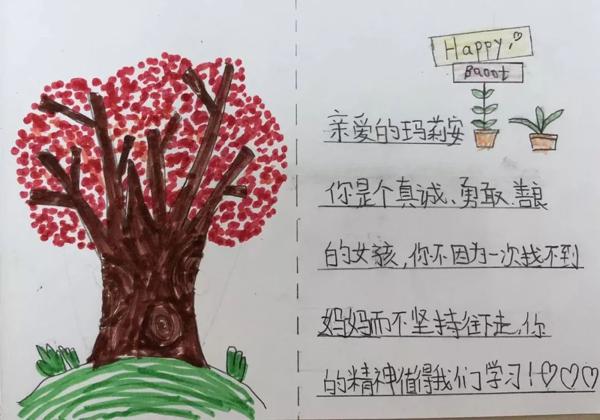 Happy!
Baoot
亲爱的玛莉安
你是个真诚、勇敢、善良
的女孩，你不因为一次找不到
妈妈而不坚持往下走，你
的精神值得我们学习！